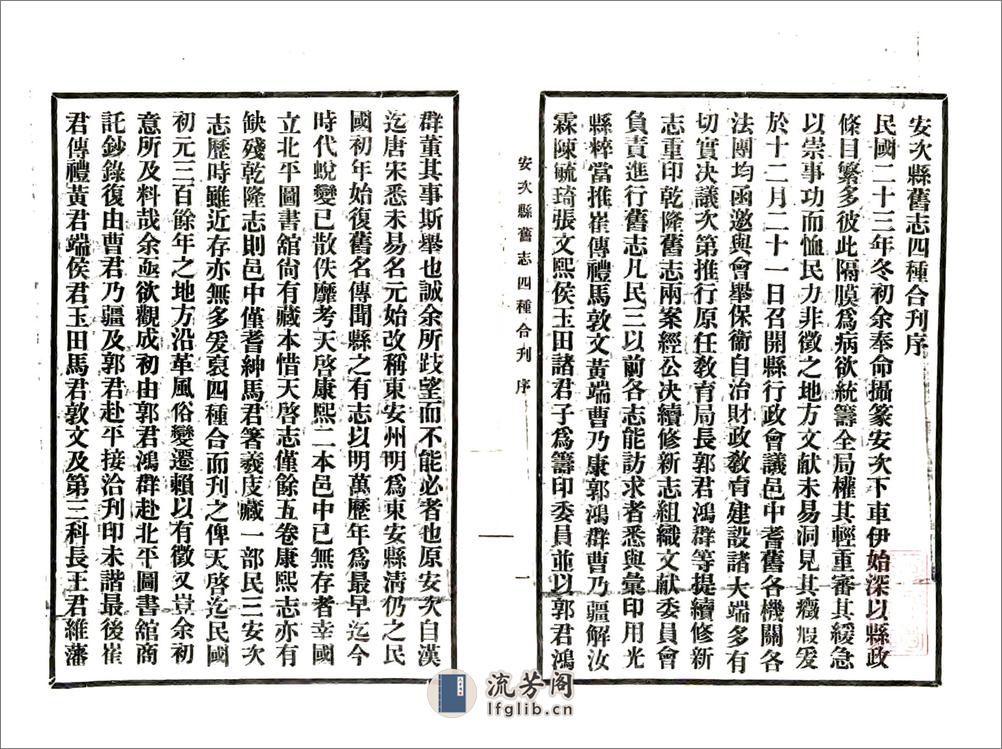 安次縣舊志四種合刋序
民國二十三年冬初余奉命攝篆安次下車伊始深以縣政
條目繁多彼此隔膜爲病欲統籌全局權其輕重審其緩急
以崇事功而恤民力非徵之地方文献未易洞見其癥瑕爰
於十二月二十一日召開縣行政會議邑中耆舊各機關各
法團均函邀與會舉保衛自治財政敎育建設諸大端多有
切實決議次第推行原任敎育局長郭君鴻群等提續修新
志重印乾隆舊志兩案經公決續修新志組織文献委員會
負責進行舊志凡民三以前各志能訪求者悉與彙印用光
縣粹當推崔傳禮馬敦文黃端曹乃康郭鴻群曹乃疆解汝
霖陳毓琦張文熙侯玉田諸君子爲籌印委員並以郭君鴻
安次縣舊志四種合刋 序
一
群董其事斯舉也誠余所跂望而不能必者也原安次自漢
迄唐宋悉未易名元始改稱東安州明爲東安縣清仍之民
國初年始復舊名傳聞縣之有志以明萬歷年爲最早迄今
時代蛻變已散佚靡考天啓康熙二本邑中已無存者幸國
立北平圖書舘尙有藏本惜天啓志僅餘五卷康熙志亦有
缺殘乾隆志則邑中僅耆紳馬君箸羲庋藏一部民三安次
志歷時雖近存亦無多爰裒四種合而刋之俾天啓迄民國
初元三百餘年之地方沿革風俗變遷賴以有徵又豈余初
意所及料哉余亟欲觀成初由郭君鴻群赴北平圖書舘商
託鈔錄復由曹君乃疆及郭君赴平接洽刋印未諧最後崔
君傳禮黃君端侯君玉田馬君敦文及第三科長王君維藩
流芳阁
lfglib.cn